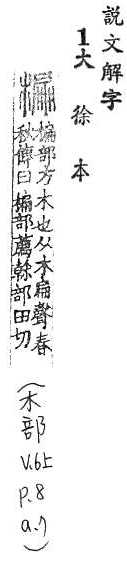 說文解字
1大徐本
楄部方木也从木扁聲春
秋傳曰楄部薦榦部田切
(木部
V.6上
P.8
a.7)